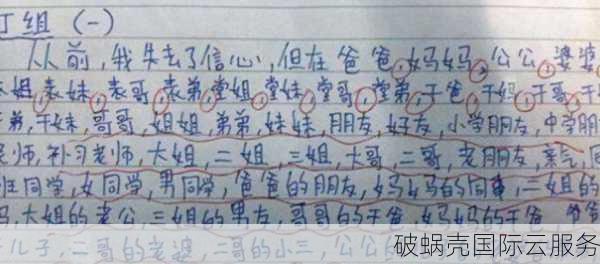 丁组（一）
从前,我失去了信心,但在爸爸,妈妈,公公,婆婆
表姐,表妹,表哥,表弟,堂姐,堂妹,堂哥,堂弟,干爸,干妈,干哥,干
弟,干妹,哥哥,姐姐,弟弟,妹妹,朋友,好友,小学朋友,中学朋
老师,补习老师,大姐,二姐,三姐,大哥,二哥,老朋友,亲戚,同
班同学,女同学,男同学,爸爸的朋友,妈妈的同事,二姐的
妈,大姐的老公,三姐的男友,哥哥的干爸,妈妈的干爸,爷爷
儿子,二哥的老婆,二哥的小三,公公
破蜗壳国际云服务